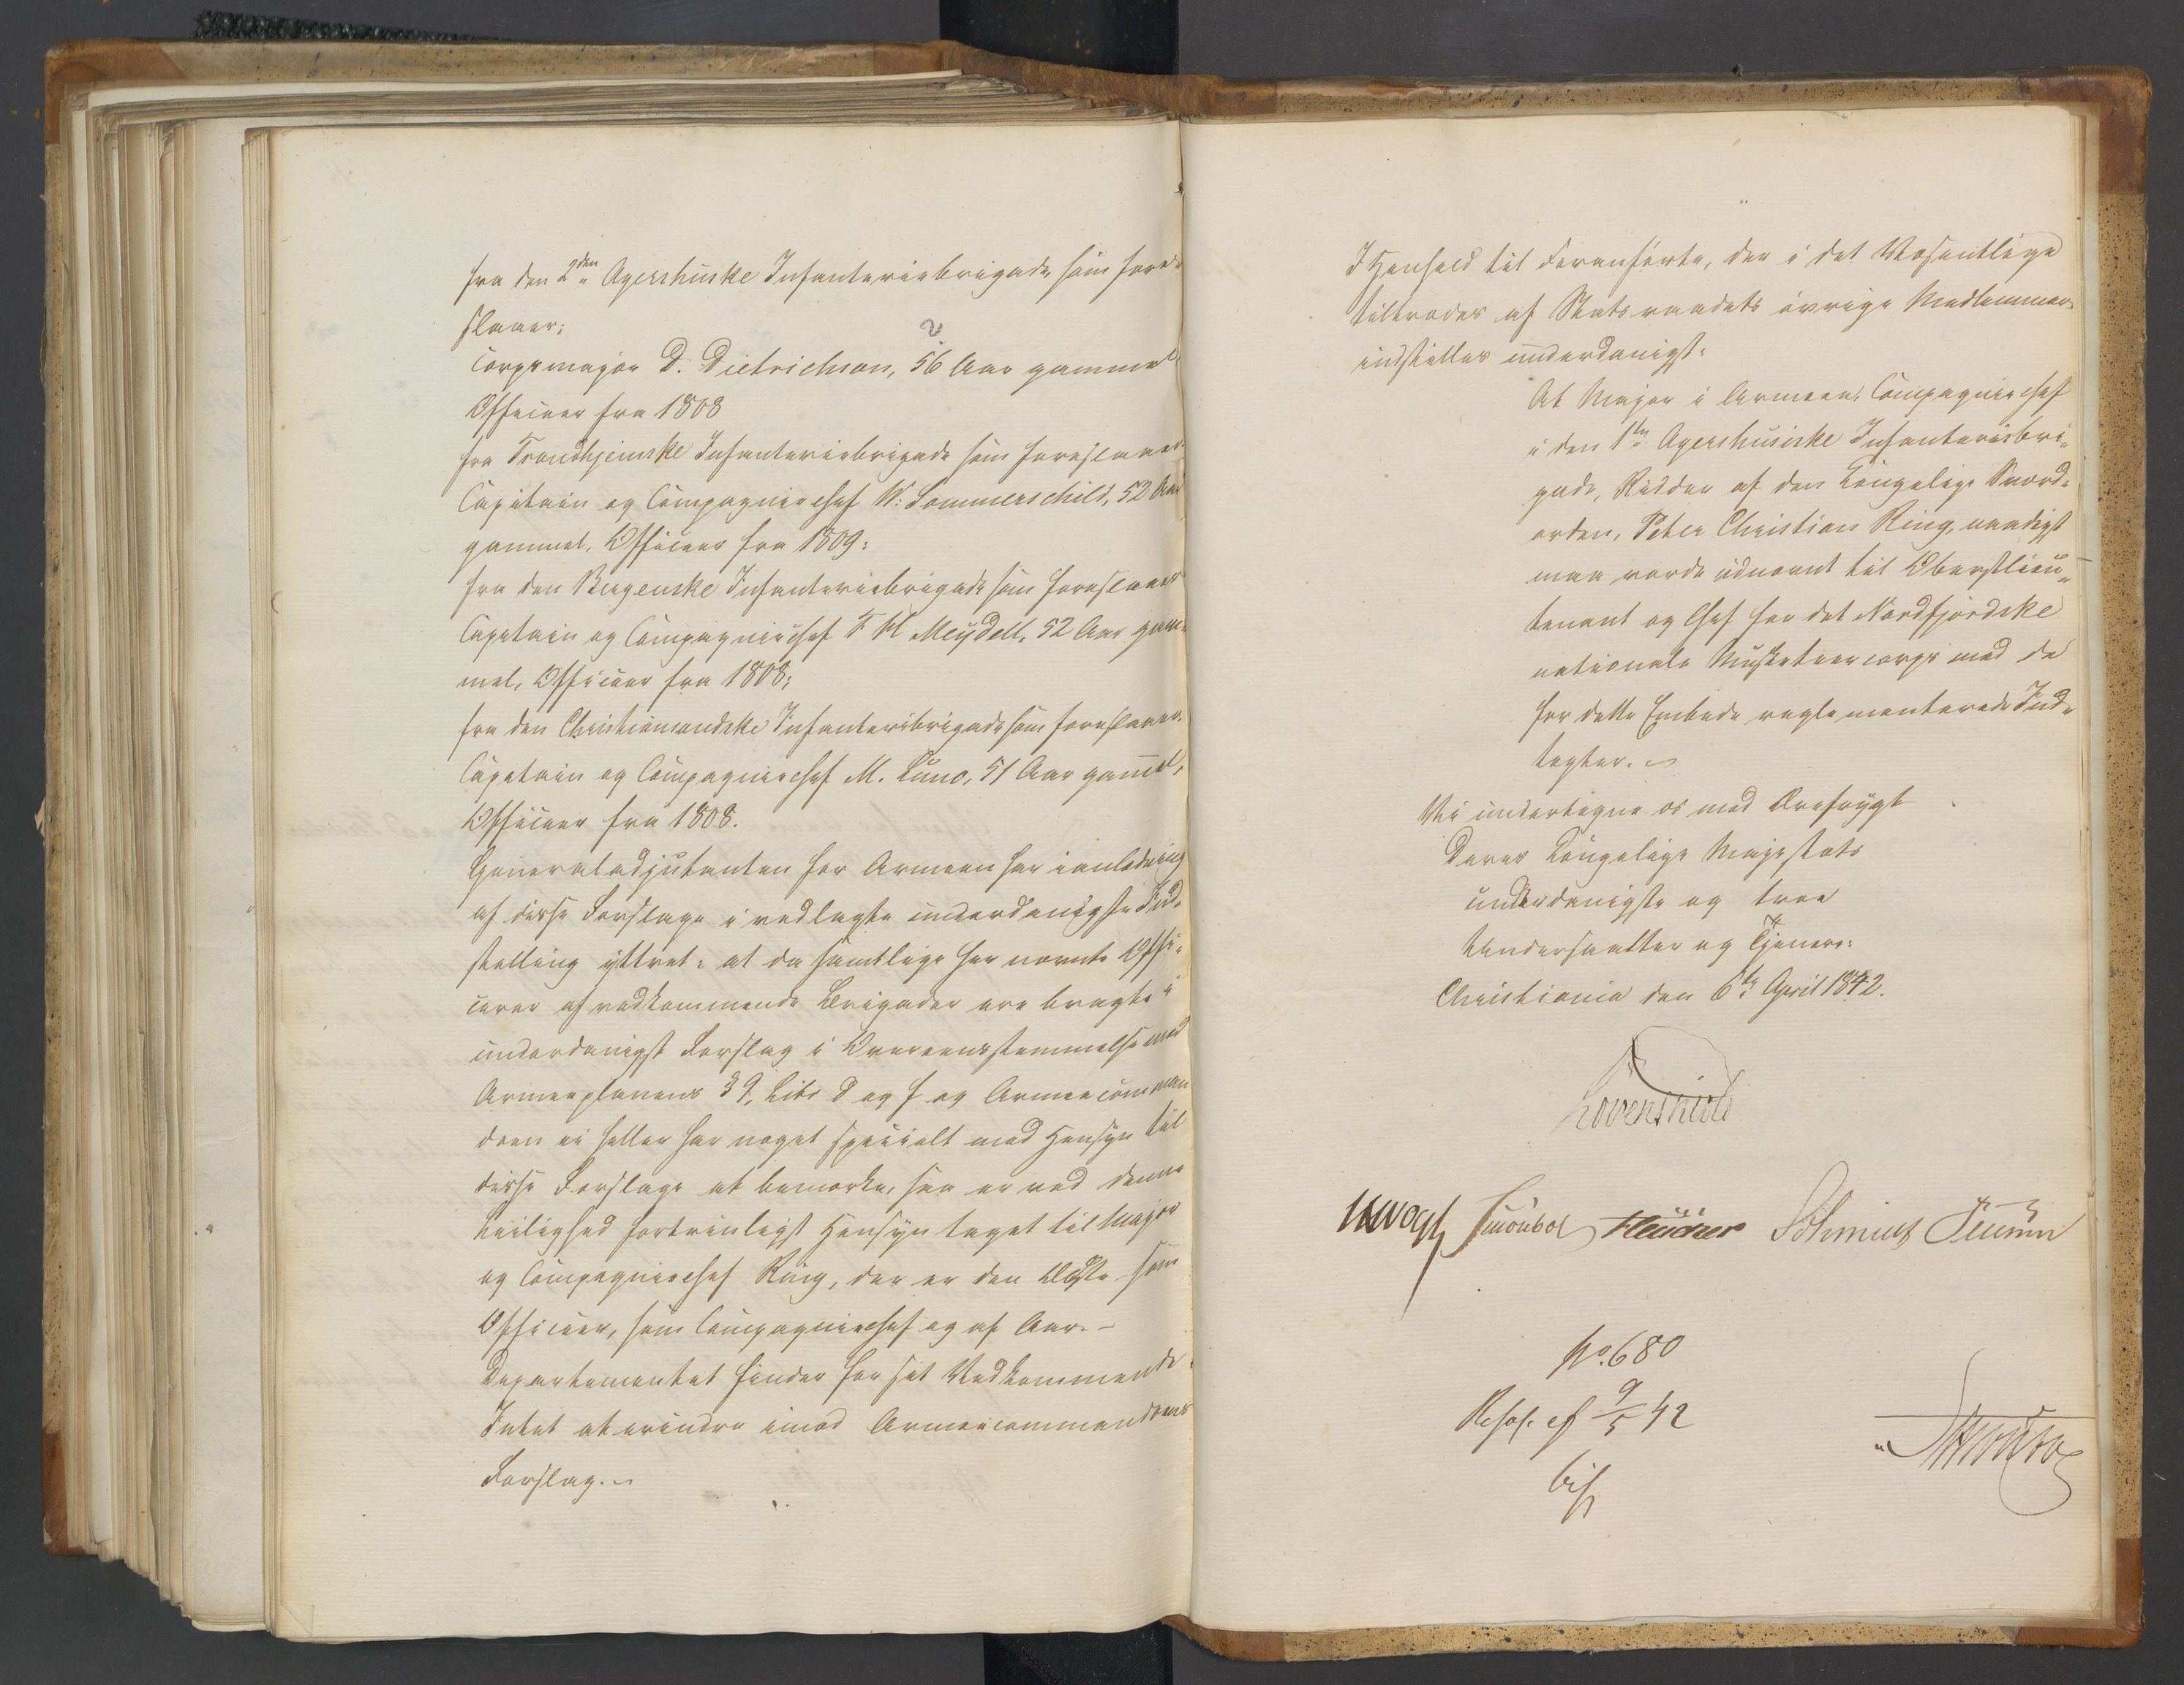 fra den 2den Agershuske Infanteriebrigade som fore-
slaaer:
Corpsmajor D. Dietrichson, 56 Aar gammel
Officeer fra 1808
fra Trondhjemske Infanteriebrigade som foreslaaer
Capitain og Compagniechef W. Sommerschild, 52 Aar
gammel, Officeer fra 1809:
fra den Bergenske Infanteriebrigade som foreslaaer
Capitain og Compagniechef T H Meydell, 52 Aar gam-
mel, Officeer fra 1808;
fra den Christiansandske Infanteribrigade som foreslaaer
Capitain og Compagniechef M. Luno, 51 Aar gammel,
Officeer fra 1808.
Generaladjutanten for Armeen har i anledning
af disse Forslage i vedlagte underdanigste Ind-
stilling yttret: at da samtlige her nævnte Offi-
cerer af vedkommende Brigader ere bragte i
underdanigst Forslag i Overeensstemmelse med
Armeeplanens § 9, Litr d og f og Armeecomman
doen ei heller har noget specielt med Hensyn til
disse Forslage at bemærke, saa er ved denne
Leilighed fortrinligst Hensyn taget til Major
og Compagniechef Ring, der er den Ældste som
Officeer, som Compagniechef og af Aar.-
Departementet finder for sit Vedkommende
Intet at erindre imod Armeecommandoens
Forslag.
I Henhold til Foranførte, der i det Væsentlige
tiltrædes af Statsraadets øvrige Medlemmer
indstilles underdanigst:
At Major i Armeen, Compagniechef
i den 1ste Agershusiske Infanteriebri-
gade, Ridder af den Kongelige Sværd-
orden, Peter Christian Ring, naadigst
maa vorde udnævnt til Oberstlieu-
tenant og Chef for det Nordfjordske
nationale Musketeercorps med de
for dette Embede reglementerede Ind-
tægter.
Vi undertegne os med Ærefrygt
Deres Kongelige Majestæts
underdanigste og troe
Undersaatter og Tjenere:
Christiania den 6te April 1842.
Løvenskiold
Vogt Schmidt
No. 680
Resol. af 9/5 42